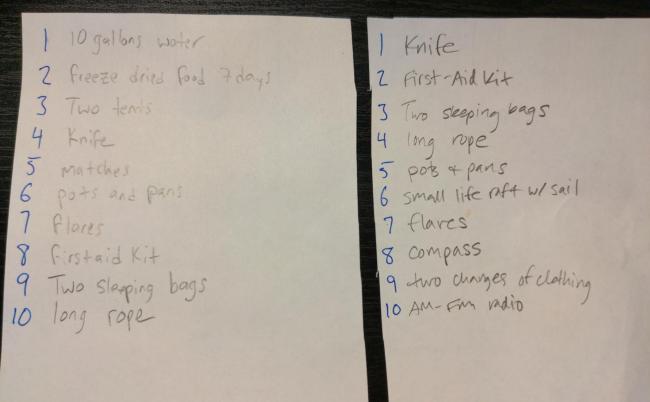 1 10 gallons water
2 freeze dried food 7 days
3 Two tents
4 Knife
5 matches
6 pots and pans
7 flares
8 first aid Kit
9 Two sleeping bags
10 long rope
1 Knife
2 First-Aid Kit
3 Two sleeping bags
4 long rope
5 pots + pans
6 small life raft w/ sail
7 flares
8 compass
9 two changes of clothing
10 AM-FM radio